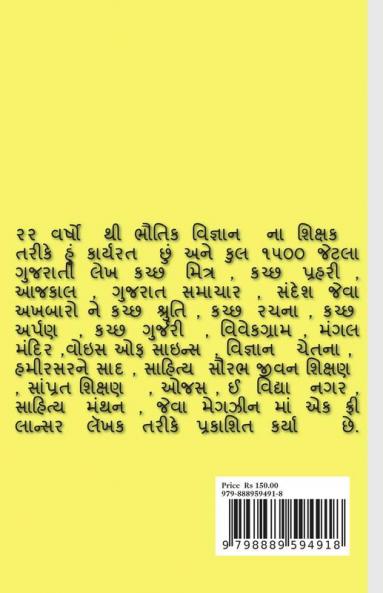 ૨૨ વર્ષો થી ભૌતિક વિજ્ઞાન ના શિક્ષક
તરીકે હું કાર્યરત છું અને કુલ ૧૫૦૦ જેટલા
ગુજરાતી લેખ કચ્છ મિત્ર , કચ્છ પ્રહરી ,
આજકાલ , ગુજરાત સમાચાર , સંદેશ જેવા
અખબારો ને કચ્છ શ્રુતિ , કચ્છ રચના , કચ્છ
અર્પણ , કચ્છ ગુર્જરી , વિવેકગ્રામ , મંગલ
મંદિર ,વોઇસ ઓફ સાઇન્સ , વિજ્ઞાન ચેતના ,
હમીરસરને સાદ , સાહિત્ય સૌરભ જીવન શિક્ષણ
, સાંપ્રત શિક્ષણ , ઓજસ , ઈ વિદ્યા નગર ,
સાહિત્ય મંથન , જેવા મેગઝીન માં એક ફ્રી
લાન્સર લૅખક તરીકે પ્રકાશિત કર્યાં છે.
Price Rs 150.00
979-888959491-8
9 798889 594918